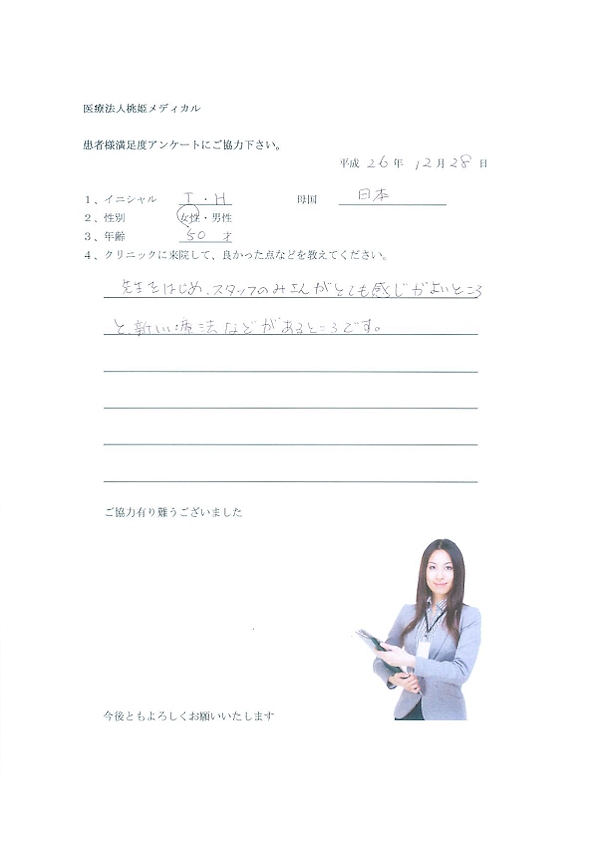 医療法人桃姫メディカル
患者様満足度アンケートにご協力下さい。
平成 26 年 12 月 28 日
1、イニシャル T・H 母国 日本
2、性別 女性・男性
3、年齢 50 才
4、クリニックに来院して、良かった点などを教えてください。
先生をはじめ、スタッフのみさんがとても感じがよいところ
と、新しい療法などがあるところです。
ご協力有り難うございました
今後ともよろしくお願いいたします